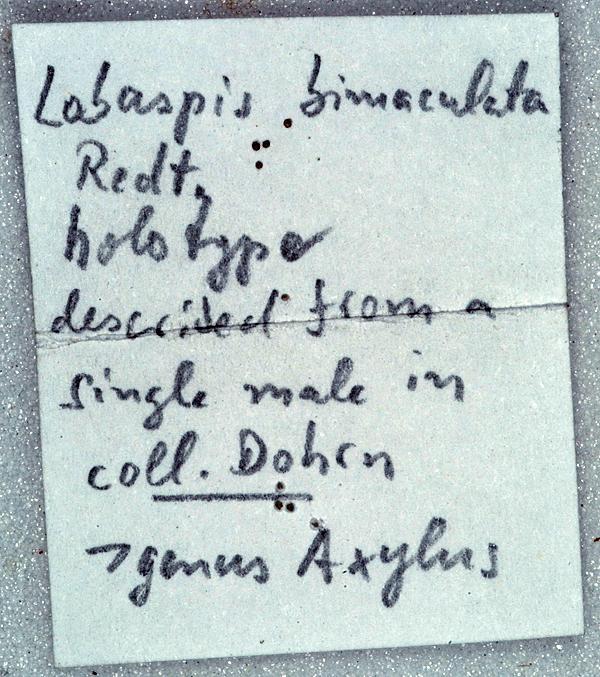 Labaspis bimaculata
Redt.
holotype
described from a
single male in
coll. Dohrn
→genus Axylus